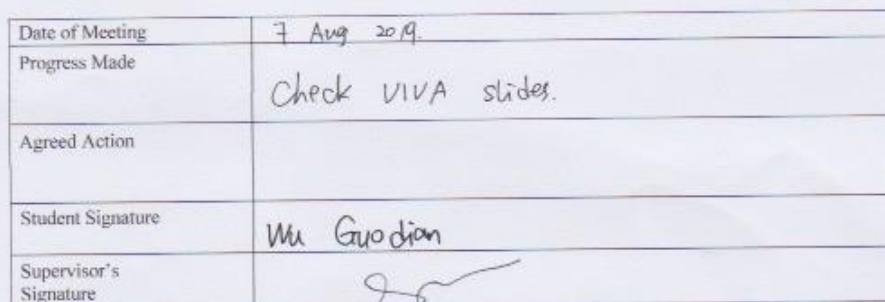 Date of Meeting 7 Aug 2019.
Progress Made
Check VIVA slides.
Agreed Action
Student Signature
Wu Guodian
Supervisor's
Signature